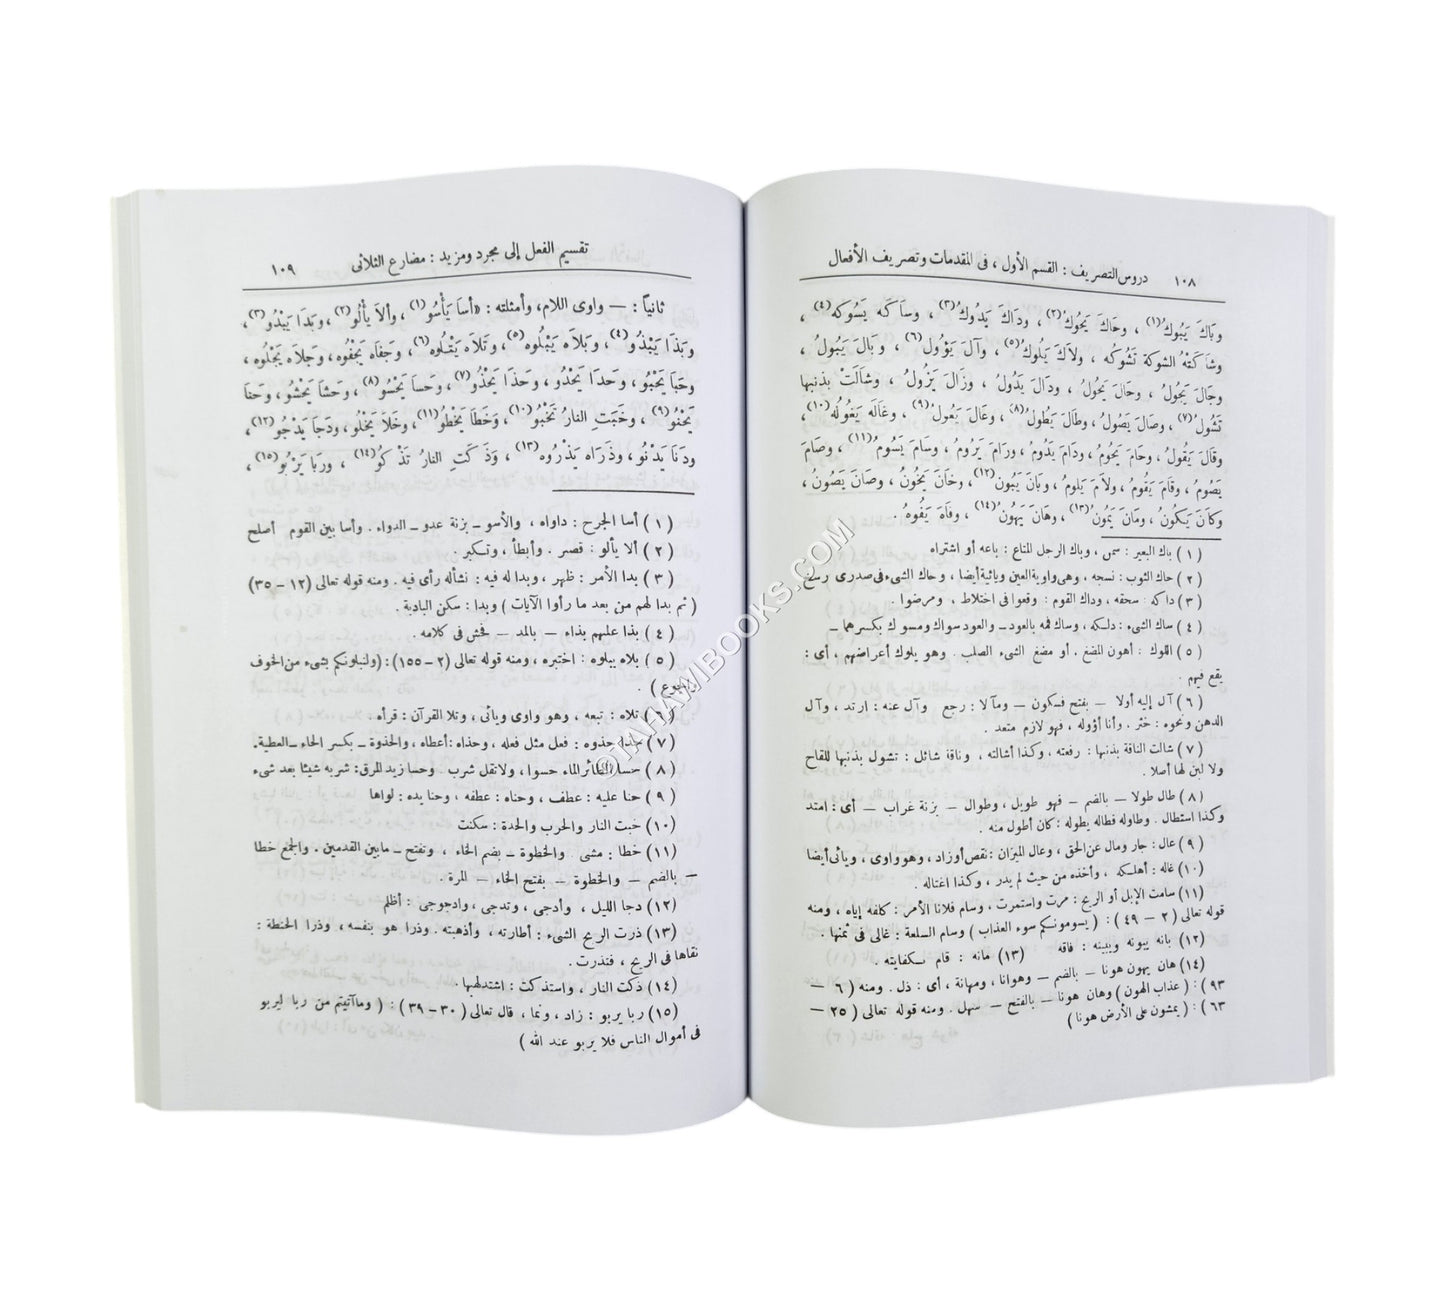 ١٠٨ دروس التصريف : القسم الأول ، فى المقدمات وتصريف الأفعال
وبَاكَ يَبُوكُ(١) ، وحَاكَ يَحُوكُ(٢) ، ودَاكَ يَدُوكُ(٣) ، وسَاكَه يَسُوكه(٤) ،
وشاكَتْهُ الشوكة تَشُوكُه ، ولاَكَ يَلُوكُ(٥) ، وآلَ يَؤُولُ(٦) ، وبَالَ يَبُولُ ،
وجَالَ يَجُولُ ، وحَالَ يَحُولُ ، ودَالَ يَدُولُ ، وزَالَ يَزُولُ ، وشَالَتْ بذنبها
تَشُول(٧) ، وصَالَ يَصُولُ ، وطَالَ يَطُولُ(٨) ، وعَالَ يَعُولُ(٩) ، وغَالَه يَغُولُه(١٠) ،
وقَالَ يَقُولُ ، وحَامَ يَحُومُ ، ودَامَ يَدُومُ ، ورَامَ يَرُومُ ، وسَامَ يَسُومُ(١١) ، وصَامَ
يَصُومُ ، وقَامَ يَقُومُ ، ولاَمَ يَلُومُ ، وبَانَ يَبُون(١٢) ، وخَانَ يَخُونُ ، وصَانَ يَصُونُ ،
وكاَنَ يَكُونُ ، ومَانَ يَمُون(١٣) ، وهَانَ يَهُون(١٤) ، وفَاهَ يَفُوهُ .
(١) باك البعير : سمن ، وباك الرجل المتاع : باعه أو اشتراه
(٢) حاك الثوب : نسجه ، وهى واوية العين ويائية أيضا ، وحاك الشىء فى صدرى رسخ
(٣) داكه : سحقه ، وداك القوم : وقعوا فى اختلاط ، ومرضوا .
(٤) ساك الشىء : دلكه ، وساك فمه بالعود ــ والعود سواك ومسوك بكسرهما ــ
(٥) اللوك : أهون المضغ . أو مضغ الشىء الصلب . وهو يلوك أعراضهم ، أى :
يقع فيهم .
(٦) آل إليه أولا ــ بفتح فسكون ــ ومآلا : رجع وآل عنه : ارتد ، وآل
الدهن ونحوه : خثر . وأنا أؤوله ، فهو لازم متعد .
(٧) شالت الناقة بذنبها : رفعته ، وكذا أشالته ، وناقة شائل : تشول بذنبها للقاح
ولا لبن لها أصلا .
(٨) طال طولا ــ بالضم ــ فهو طويل ، وطوال ــ بزنة غراب ــ أى : امتد
وكذا استطال . وطاوله فطاله يطوله : كان أطول منه .
(٩) عال : جار ومال عن الحق ، وعال الميزان : نقص أو زاد ، وهو واوى ، ويائى أيضا
(١٠) غاله : أهلكه ، وأخذه من حيث لم يدر ، وكذا اغتاله .
(١١) سامت الإبل أو الريح : مرت واستمرت ، وسام فلانا الأمر : كلفه إياه ، ومنه
قوله تعالى (٢ ــ ٤٩) : ( يسومونكم سوء العذاب ) وسام السلعة : غالى فى ثمنها .
(١٢) بانه يبونه ويبينه : فاقه (١٣) مانه : قام بكفايته .
(١٤) هان يهون هونا ــ بالضم ــ وهوانا ، ومهانة ، أى : ذل . ومنه ( ٦ ــ
٩٣) : ( عذاب الهون ) وهان هونا ــ بالفتح ــ سهل . ومنه قوله تعالى ( ٢٥ ــ
٦٣ ) : ( يمشون على الأرض هونا )
تقسيم الفعل إلى مجرد ومزيد : مضارع الثلاثى ١٠٩
ثانياً : ــ واوى اللام، وأمثلته : «أسا يَأْسُو(١) ، وألاَ يَأْلُو(٢) ، وبَدَا يَبْدُو(٣) ،
وبَذَا يَبْذُو(٤) ، وبَلاَه يَبْلُوه(٥) ، وتَلاَه يَتْلُوه(٦) ، وجَفَاه يَجْفُوه ، وجَلاَه يَجْلُوه ،
وحَبَا يَحْبُو ، وحَدَا يَحْدُو ، وحَذَا يَحْذُو(٧) ، وحَسَا يَحْسُو(٨) ، وحَشَا يَحْشُو ، وحَنا
يَحْنُو(٩) ، وخَبَتِ النارُ تَخْبُو(١٠) ، وخَطَا يَخْطُو(١١) ، وخَلاَ يَخْلُو ، ودَجَا يَدْجُو(١٢) ،
ودَنَا يَدْنُو ، وذَرَاه يَذْرُوه(١٣) ، وذَكَتِ النارُ تَذْكُو(١٤) ، ورَبا يَرْبُو(١٥) ،
(١) أسا الجرح : داواه ، والأسو ــ بزنة عدو ــ الدواء . وأسا بين القوم أصلح
(٢) ألا يألو : قصر . وأبطأ ، وتكبر .
(٣) بدا الأمر : ظهر ، وبدا له فيه : نشأ له رأى فيه . ومنه قوله تعالى (١٢ ــ ٣٥)
( ثم بدا لهم من بعد ما رأوا الآيات ) وبدا : سكن البادية .
(٤) بذا عليهم بذاء ــ بالمد ــ فحش فى كلامه .
(٥) بلاه يبلوه : اختبره ، ومنه قوله تعالى (٢ ــ ١٥٥) : (ولنبلونكم بشىء من الخوف
والجوع ) .
(٦) تلاه : تبعه ، وهو واوى ويائى ، وتلا القرآن : قرأه .
(٧) حذا حذوه : فعل مثل فعله ، وحذاه : أعطاه ، والحذوة ــ بكسر الحاء ــ العطية.
(٨) حسا الطائر الماء حسوا ، ولا تقل شرب . وحسا زيد المرق: شربه شيئا بعد شىء
(٩) حنا عليه : عطف ، وحناه : عطفه ، وحنا يده : لواها
(١٠) خبت النار والحرب والحدة : سكنت
(١١) خطا : مشى . والخطوة ــ بضم الخاء ، وتفتح ــ ما بين القدمين . والجمع خطا
ــ بالضم ــ والخطوة ــ بفتح الخاء ــ المرة .
(١٢) دجا الليل ، وأدجى ، وتدجى ، وادجوجى : أظلم
(١٣) ذرت الريح الشىء : أطارته ، وأذهبته . وذرا هو بنفسه ، وذرا الحنطة :
نقاها فى الريح ، فتذرت .
(١٤) ذكت النار ، واستذكت : اشتد لهبها .
(١٥) ربا يربو : زاد ، ونما ، قال تعالى ( ٣٠ ــ ٣٩ ) : ( وما آتيتم من ربا ليربو
فى أموال الناس فلا يربو عند الله )
©TAHAWIBOOKS.COM